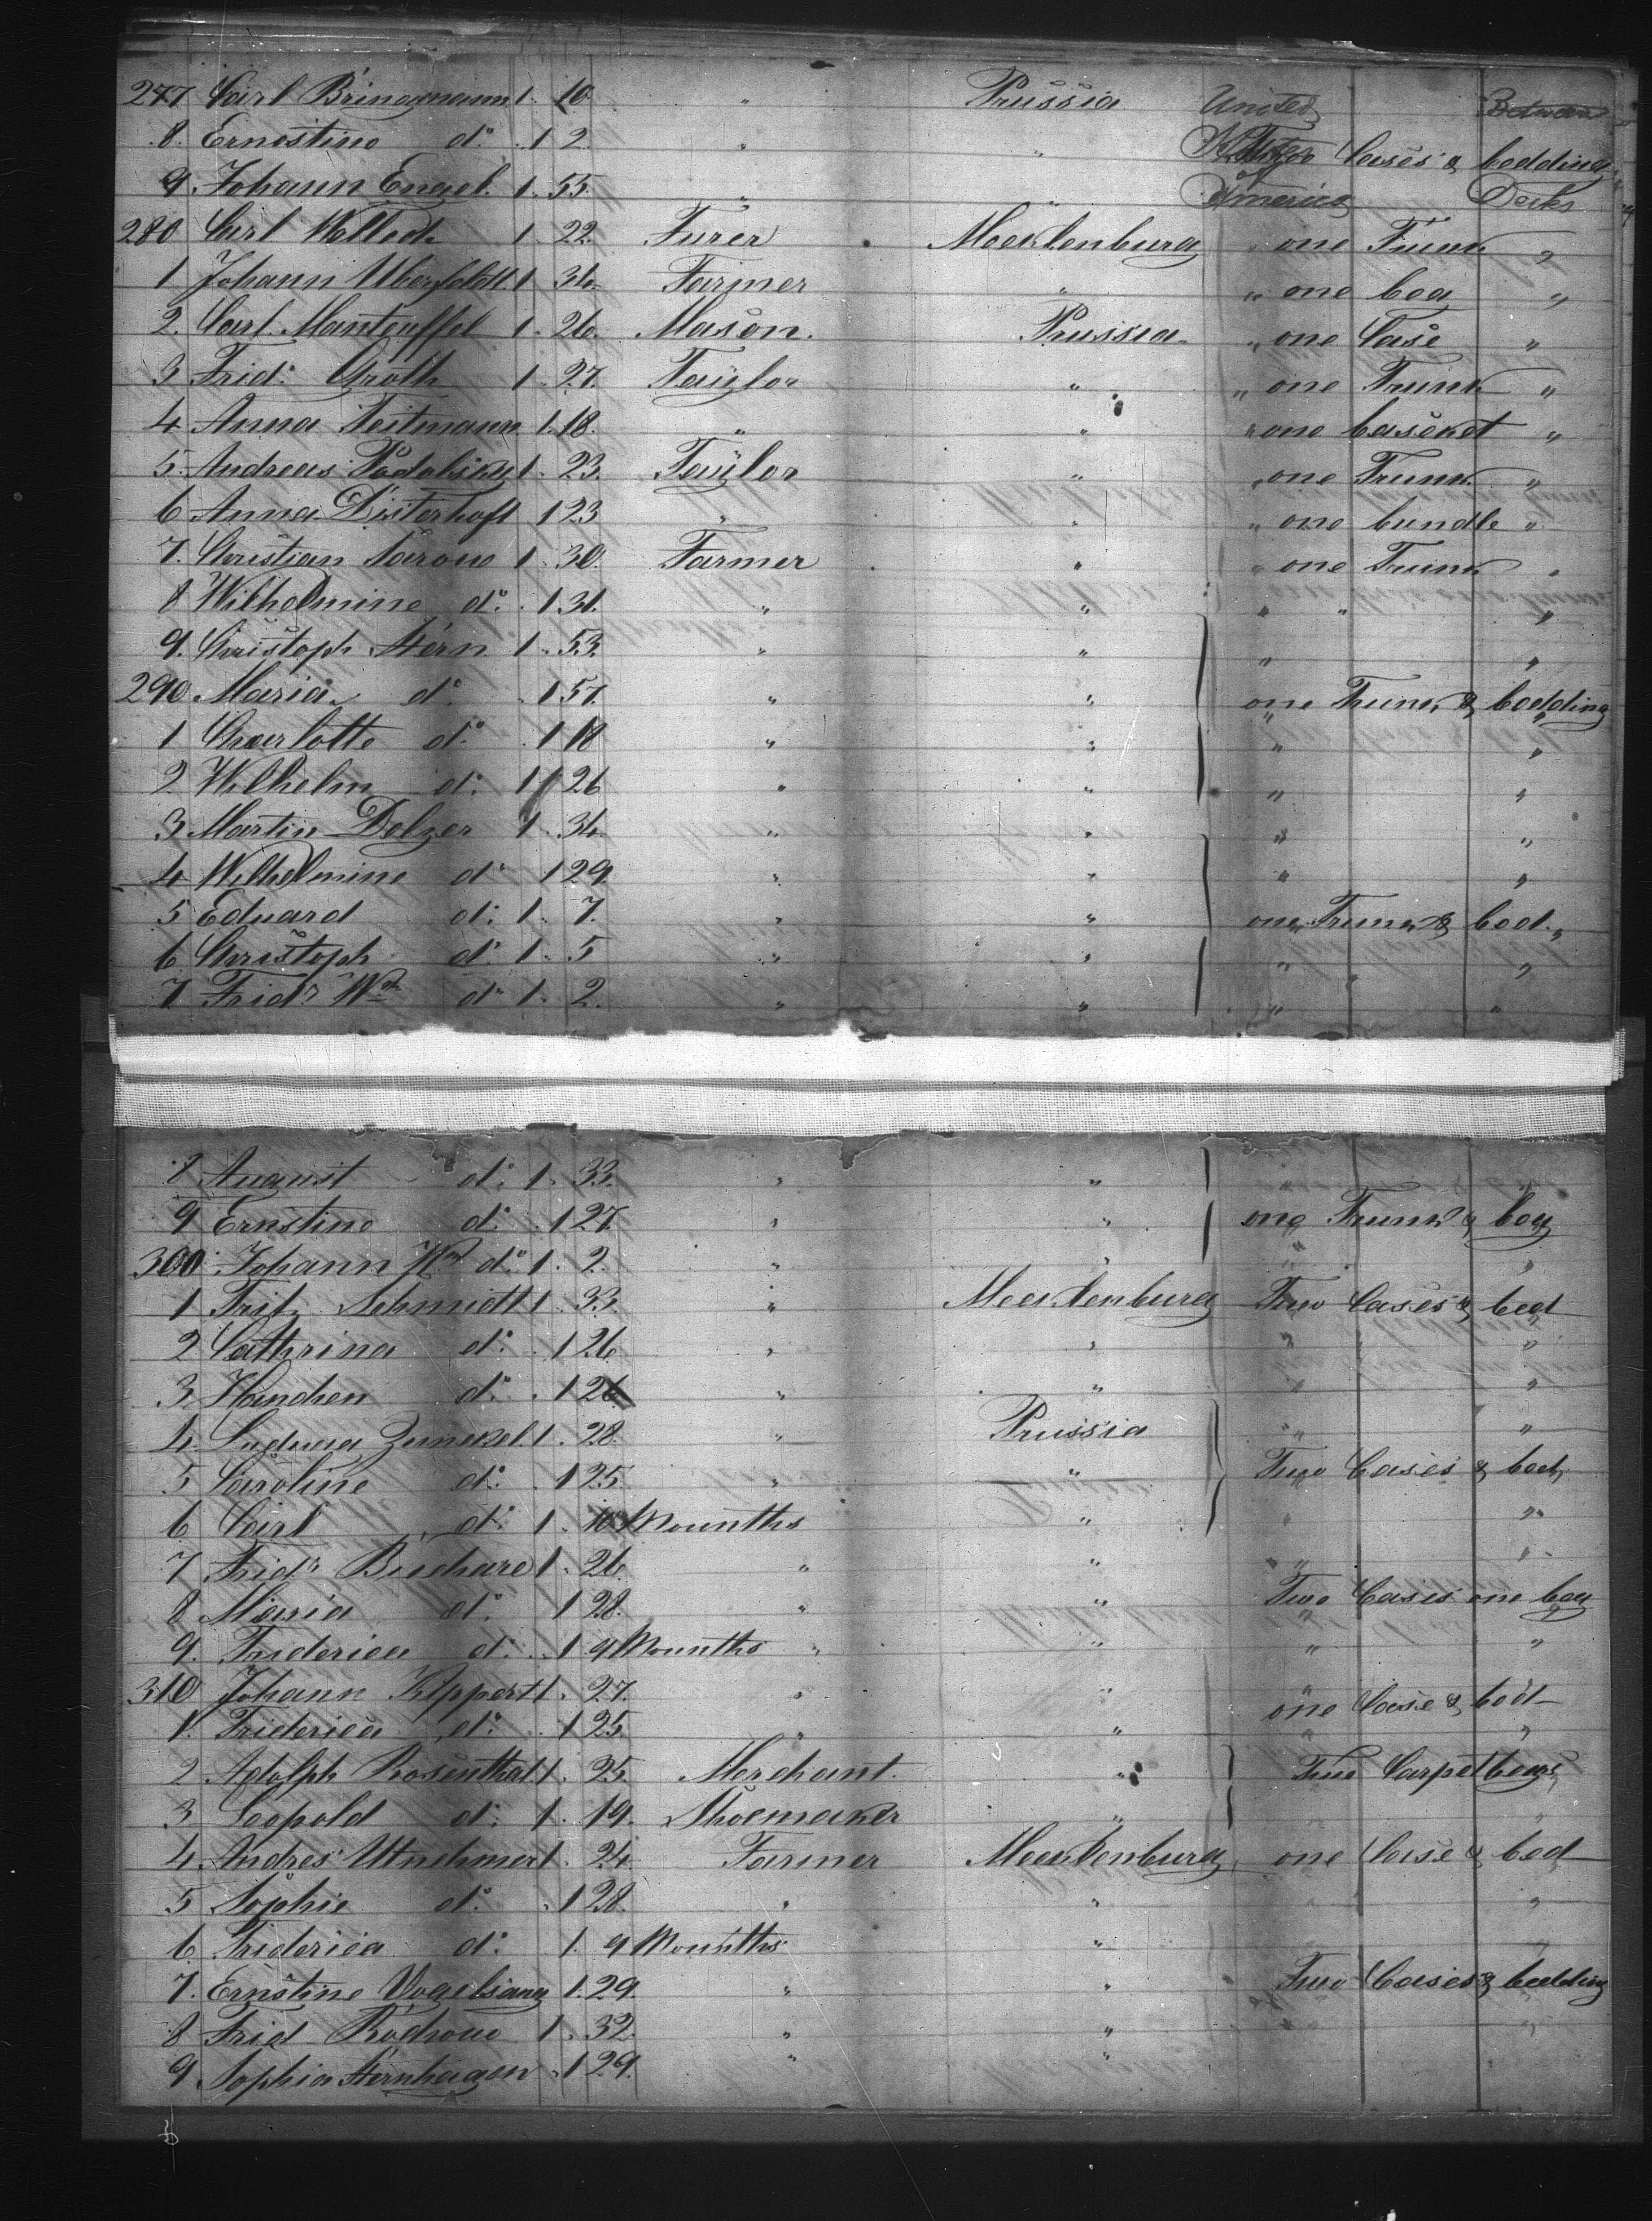 277 Carl Bringmann 1. 10 " Prussia United Between
8. Ernestine do. 1 2. " " States Two Cases & bedding
9 Johann Engel. 1. 55. " " of America Decks
280 Carl 1. 22. Furer Mecklenburg " one Trunk "
1 Johann Uberfeldt. 1 36. Farmer " " one bag "
2. Carl Manteuffel 1. 26. Mason. Prussia " one Case "
3 Frid: Groth 1. 27. Taylor " " one Trunk "
4 Anna 1. 18. " " " one bascket "
5. Andreas 1. 23. Taylor " " one Trunk "
6 Anna Disterhoft 1 23 " " " one bundle "
7. Christian Sarow 1. 30. Farmer " " one Trunk "
8 Wilhelmine do. 1 31. " " " " "
9. Christoph Stern 1. 53. " " " "
290 Maria do. 1 57. " " one Trunk & bedding
1 Charlotte do. 1 18 " " " "
2 Wilhelm do. 1 26 " " " "
3 Martin Dolzer 1. 34. " " " "
4 Wilhelmine do 1 29. " " " "
5 Eduard do. 1. 7. " " one Trunk & bed "
6 Christoph do. 1. 5 " " " "
7 Fridr. Wm do 1. 2. " " " "
8 August do. 1. 33. " " "
9 Ernstine do. 1 27. " " one Trunk & bag
300 Johann Wm do. 1. 2. " " " "
1 Fritz Schmidt 1. 33. " Mecklenburg Two Cases & bed
2 Cathrina do. 1 26. " " " "
3 Hanchen do. 1 26 " " " "
4. Ludwig Zunckel. 1. 28. " Prussia " "
5 Caroline do. 1 25. " " Two Cases & bed,
6 Carl do. 1. 10 Mounths " " "
7 Fridr. 1. 26. " " " "
8 Maria do. 1 28. " " Two Cases one bag
9. Friderica do. 1 9 Mounths " " " "
310 Johann Kippert 1. 27. " " one Case & bed
1. Friderica do. 1 25. " " " "
2 Adolph Rosenthal 1. 25. Merchant. " Two Carpetbags
3 Leopold do. 1. 19. Shoemaker " "
4. Andres Utnehmer 1. 24. Farmer Mecklenburg one Case & bed
5 Sophie do. 1 28. " " "
6 Friderica do. 1. 9 Mounths " "
7. Ernstine Vogelsang 1. 29. " " Two Cases & bedding
8 Frid 1. 32. " " "
9 Sophia Sternhagen 1 29. " "